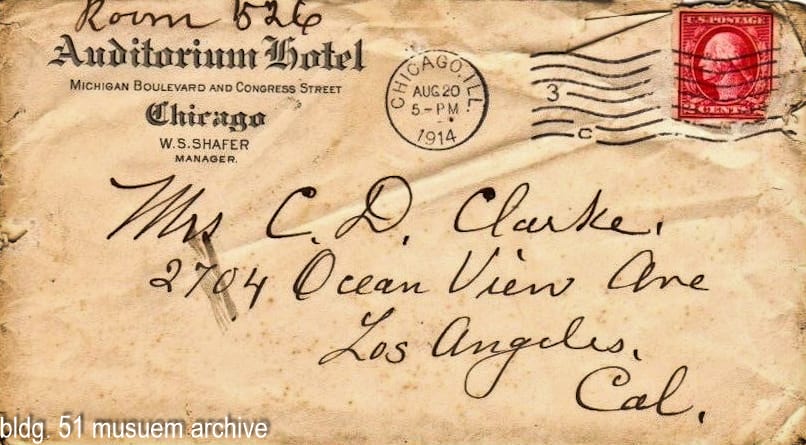 Room 526
Auditorium Hotel
MICHIGAN BOULEVARD AND CONGRESS STREET
Chicago
W.S. SHAFER
MANAGER.
CHICAGO, ILL.
AUG 20
5-PM
1914
3
C
U.S. POSTAGE
2 CENTS 2
Mrs C. D. Clarke.
2704 Ocean View Ave
Los Angeles.
Cal.
bldg. 51 musuem archive